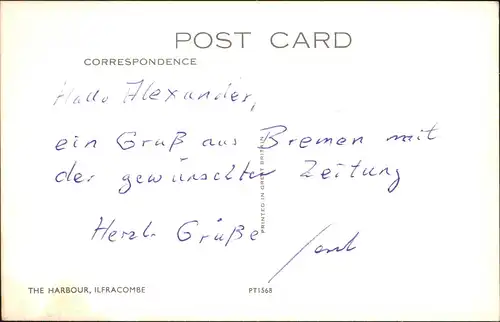 POST CARD
CORRESPONDENCE
Hallo Alexander,
ein Gruß aus Bremen mit
der gewünschten Zeitung
Herzl. Grüße
PRINTED IN GREAT BRITAIN
THE HARBOUR, ILFRACOMBE PT1568